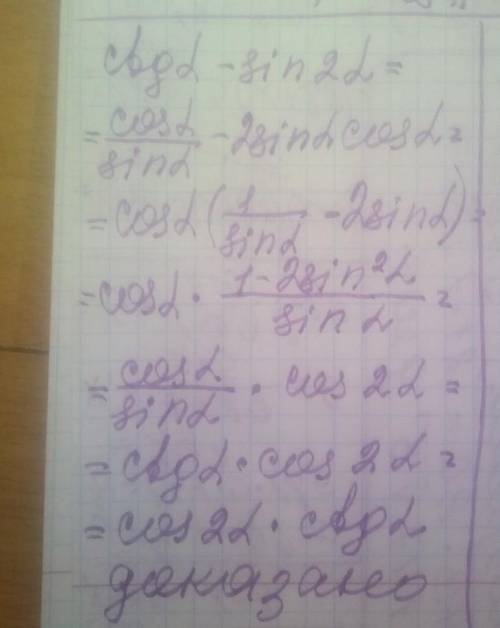 ctgα - sin2α =
= cosα/sinα - 2sinα cosα =
= cosα (1/sinα - 2sinα) =
= cosα · (1 - 2sin²α)/sinα =
= cosα/sinα · cos2α =
= ctgα · cos2α =
= cos2α · ctgα
доказано